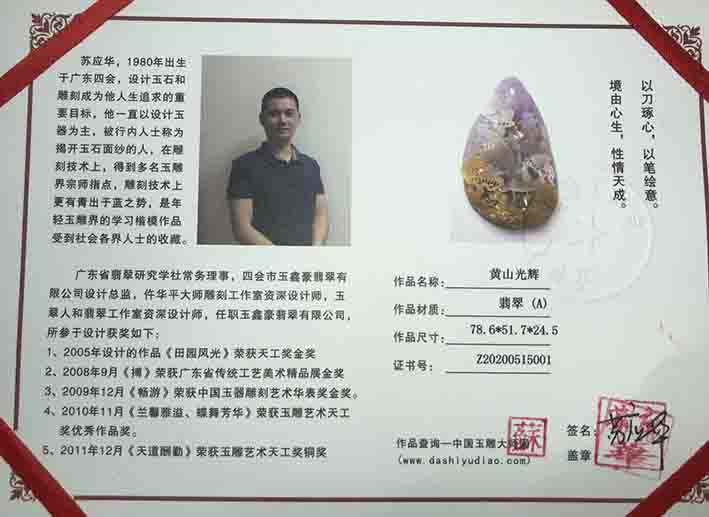 苏应华，1980年出生
于广东四会，设计玉石和
雕刻成为他人生追求的重
要目标，他一直以设计玉
器为主，被行内人士称为
揭开玉石面纱的人，在雕
刻技术上，得到多名玉雕
界宗师指点，雕刻技术上
更有青出于蓝之势，是年
轻玉雕界的学习楷模作品
受到社会各界人士的收藏。
广东省翡翠研究学社常务理事，四会市玉鑫豪翡翠有
限公司设计总监，仵华平大师雕刻工作室资深设计师，玉
翠人和翡翠工作室资深设计师，任职玉鑫豪翡翠有限公司，
所参于设计获奖如下：
1、2005年设计的作品《田园风光》荣获天工奖金奖
2、2008年9月《搏》荣获广东省传统工艺美术精品展金奖
3、2009年12月《畅游》荣获中国玉器雕刻艺术华表奖金奖。
4、2010年11月《兰馨雅溢、蝶舞芳华》荣获玉雕艺术天工
奖优秀作品奖。
5、2011年12月《天道酬勤》荣获玉雕艺术天工奖铜奖
以刀琢心，以笔绘意。
境由心生，性情天成。
作品名称：黄山光辉
作品材质：翡翠（A）
作品尺寸：78.6*51.7*24.5
证书号：Z20200515001
作品查询一中国玉雕大师网
(www.dashiyudiao.com)
蘇
签名：苏应华
盖章：